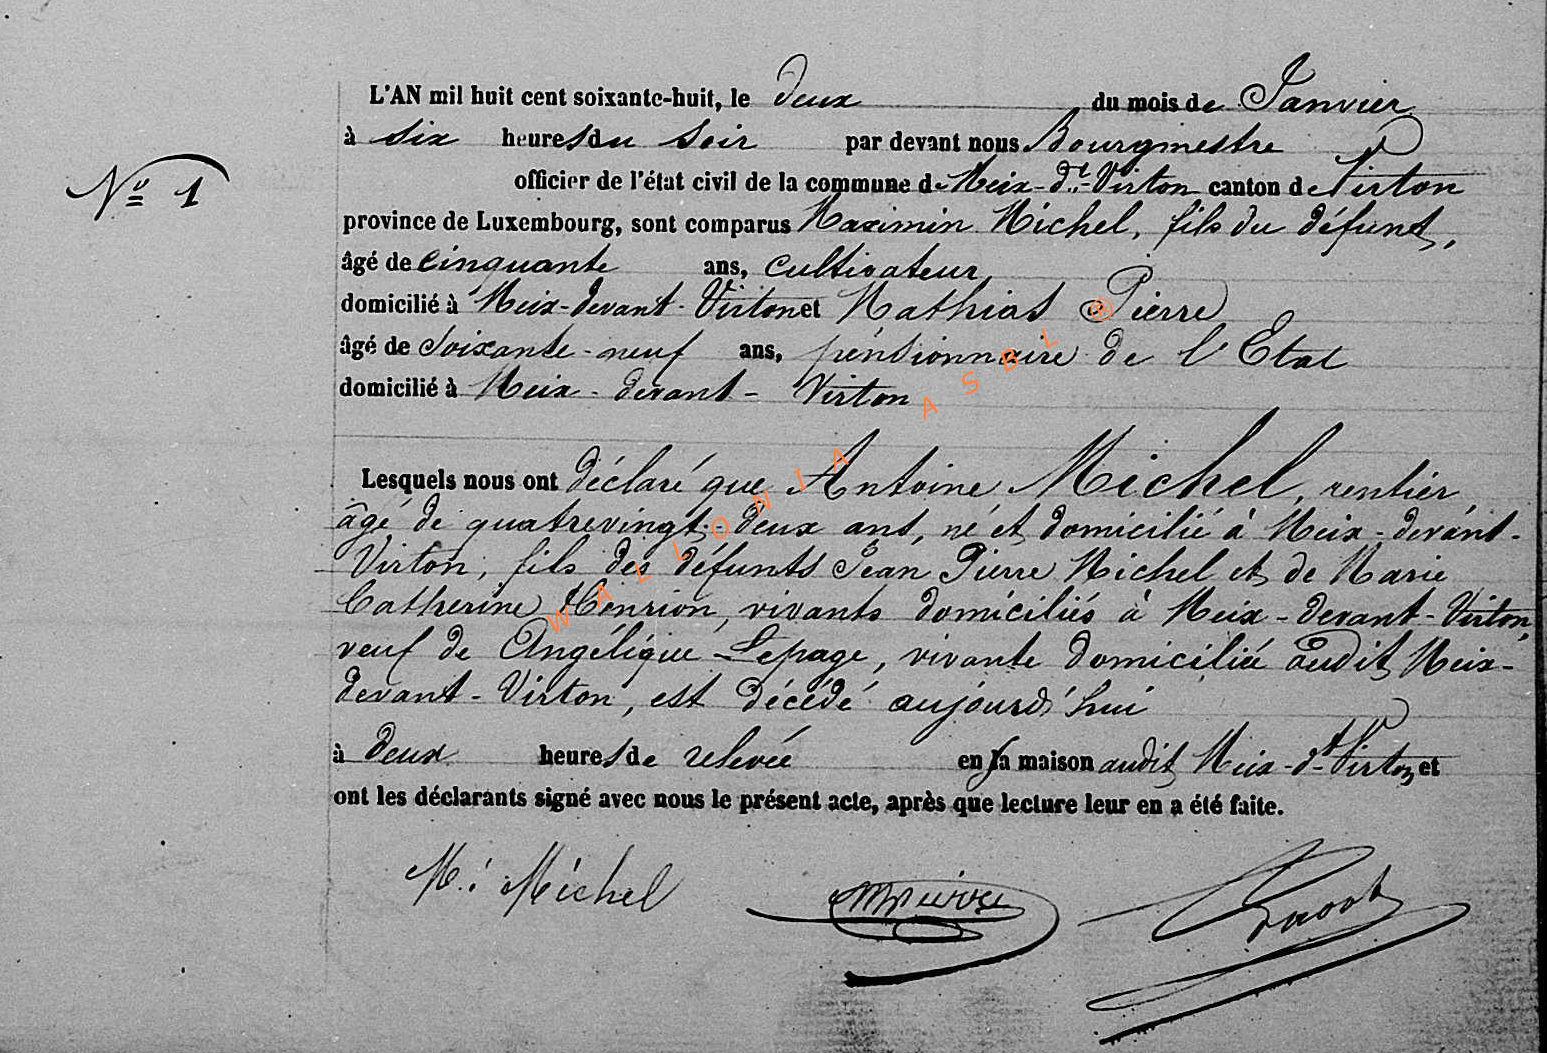 L'AN mil huit cent soixante-huit, le deux du mois de Janvier
à six heures du soir par devant nous Bourgmestre
Nº 1
officier de l'état civil de la commune de Meix-dt-Virton canton de Virton
province de Luxembourg, sont comparus Maximin Michel, fils du défunt,
âgé de cinquante ans, cultivateur
domicilié à Meix-devant-Virton et Mathias Pierre
âgé de soixante-neuf ans, pénsionnaire de l'Etat
domicilié à Meix-devant-Virton
Lesquels nous ont déclaré que Antoine Michel, rentier
âgé de quatrevingt-deux ans, né et domicilié à Meix-devant-
Virton, fils des défunts Jean Pierre Michel et de Marie
Catherine Henrion, vivants domiciliés à Meix-devant-Virton,
veuf de Angélique Lepage, vivante domiciliée audit Meix-
devant-Virton, est décédé aujourd'hui
à deux heures de relevée en sa maison audit Meix-dt-Virton, et
ont les déclarants signé avec nous le présent acte, après que lecture leur en a été faite.
M. Michel
MPierre
WALLONIA ASBL ©